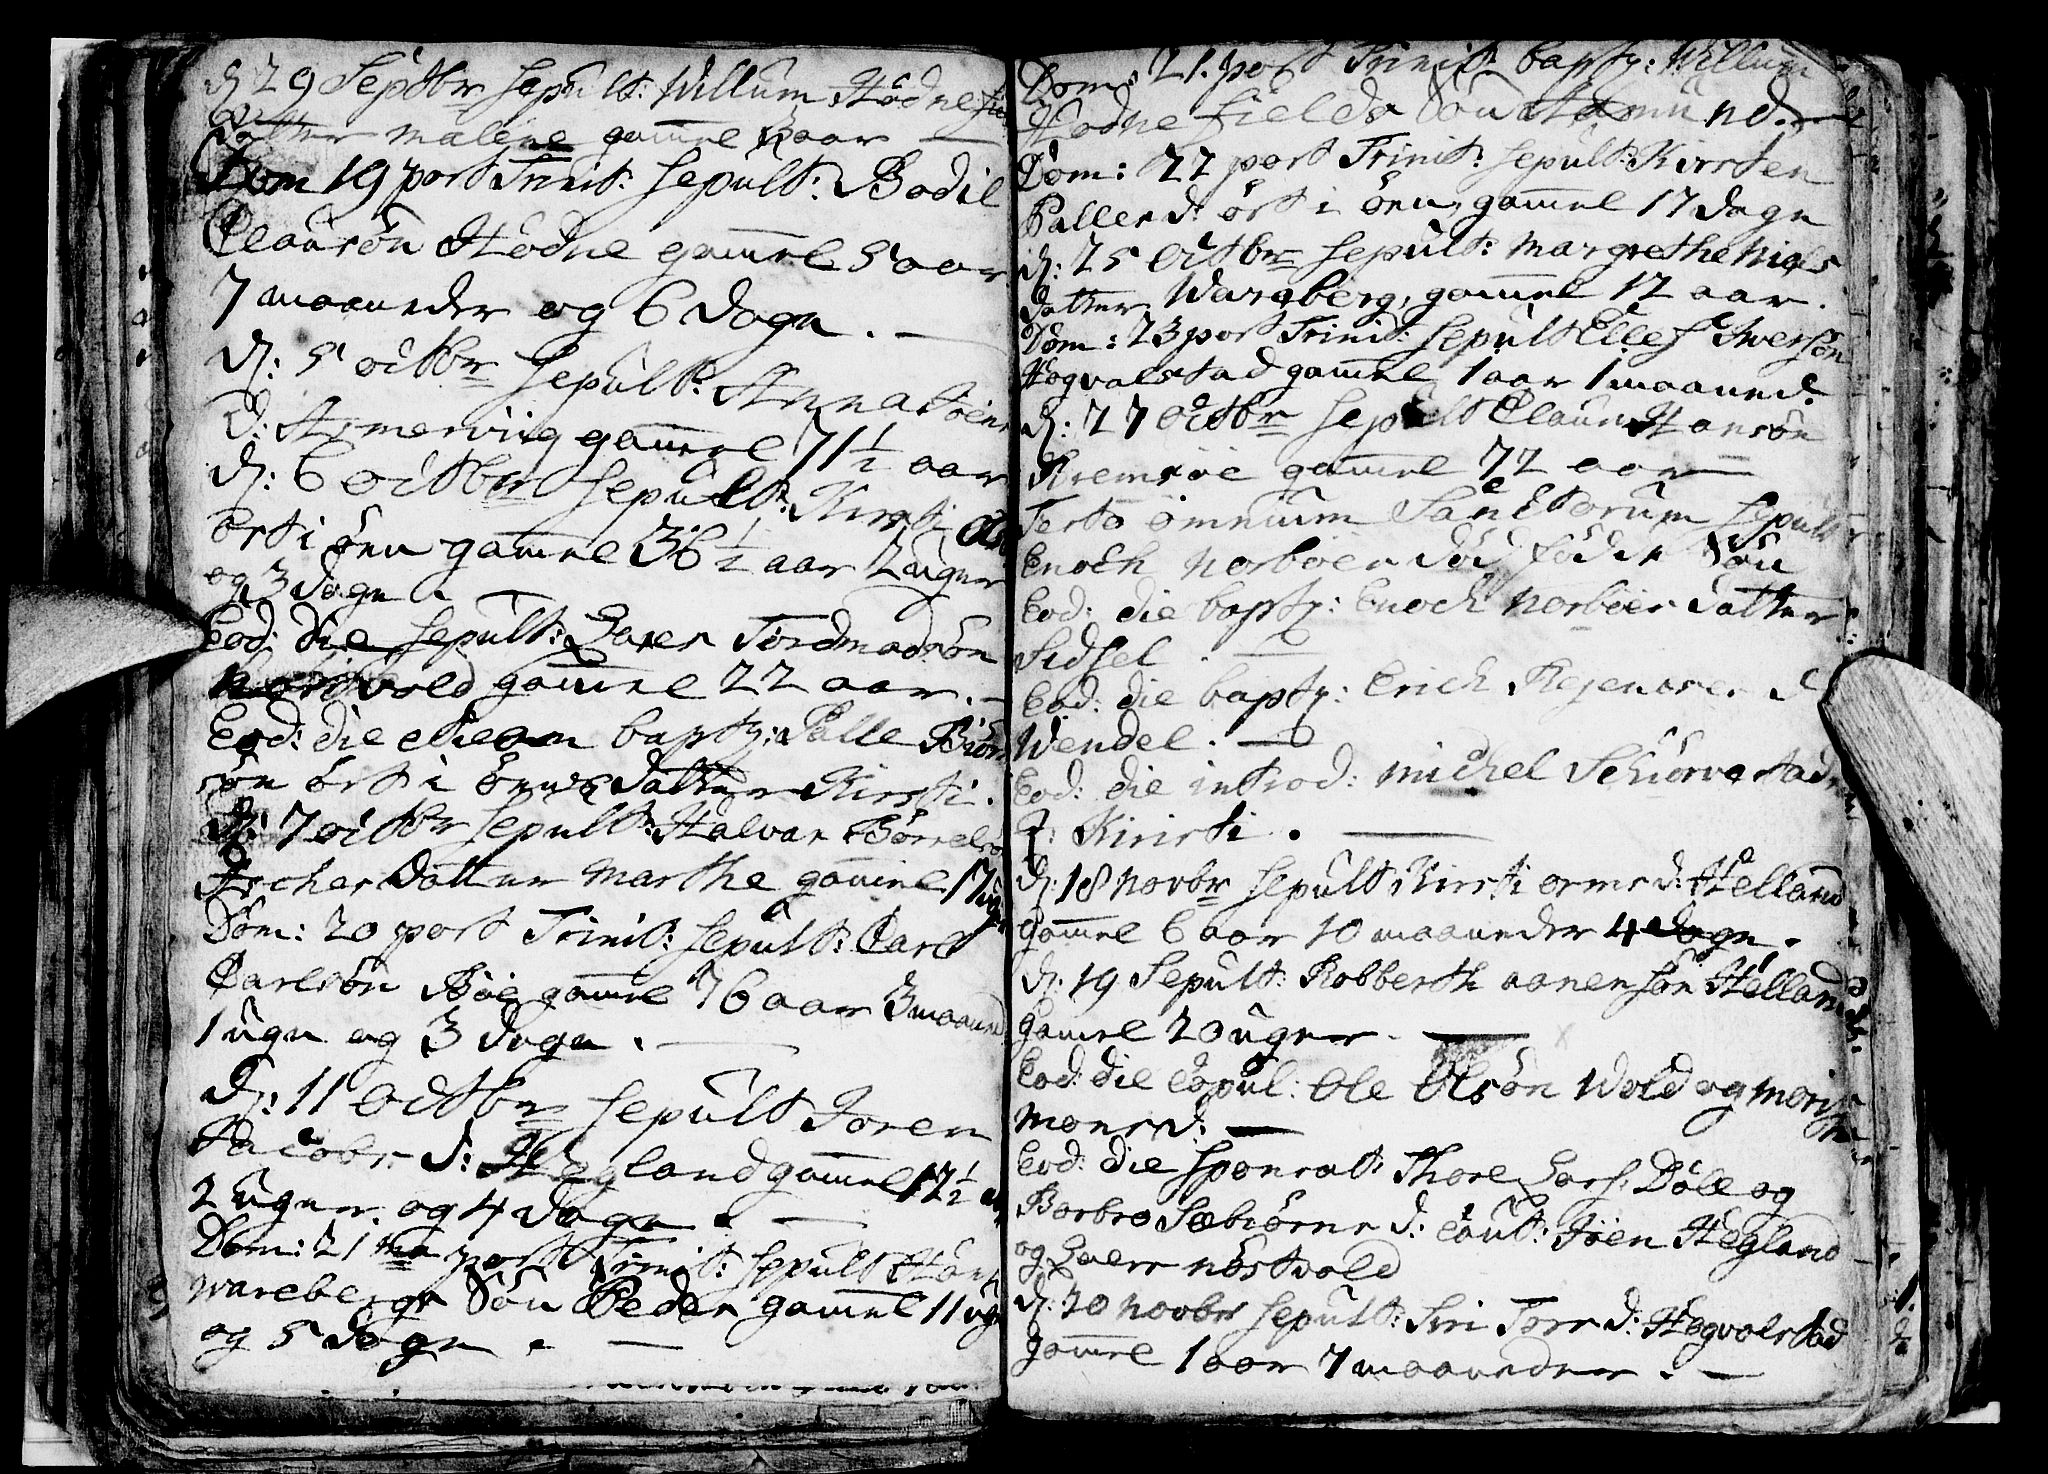 d: 29 Septbr sepult: Willum Hödne
datter malene gamel aar
Dom 19 post Trinit: sepult: Bodil
Clausön Hödne gamel 5 aar
7 maaneder og 6 dage. —
d: 5 octbr sepult: Anna
D: gamel 71 1/2 aar
d: 6 octbr sepult: Kirsti
ört i öen gamel 36 1/2 aar 2 uger
og 3 dage.
Eod: die sepult: Lars Tordmadsön
gamel 22 aar. —
Eod: die baptz: Palle Biörn
sön ört i öens datter Kirsti.
d: 7 octbr sepult: Halvar Börrels
datter Marthe gamel 17 uger
Dom: 20 post Trinit: sepult: Carl
Carlsön Böe gamel 76 aar 3 maaned
1 uge og 3 dage. —
d: 11 octbr sepult Joren
Jacobs d: Hegland gamel 17 1/2 a
2 uger og 4 dage. —
Dom: 21 post Trinit: sepult
wareberg Sön Peder gamel 11 uge
og 5 dage. —
Dom: 21. post Trinit: baptz: Willum
Hödne fields Sön
Dom: 22 post Trinit: sepult: Kirsten
Palles d: ört i öen, gamel 17 dage
d: 25 octbr sepult: Margrethe Niels
datter Wareberg, gamel 12 aar.
Dom: 23 post Trinit: sepult Ellef Iversön
Hogvalstad gamel 1 aar 1 maaned.
d: 27 octbr sepult Claus Hansön
gamel 72 aar —
Festo omnium Sanctorum sepult
Enoch Norböes död föder Sön
Eod: die baptz: Enoch Norböes datter
Sidsel. —
Eod: die baptz: Erich d
Wendel. —
Eod: die introd: Michel
q: Kiristi. —
d: 18 novbr sepult Kirsti orms d: Helland
gamel 6 aar 10 maaneder 4 dage.
d: 19 sepult: Robberth aanensön Helland
gamel 20 uger. —
Eod: die copul: Ole Olsön Wold og
Monsd: —
Eod: die sponsat: Thore Lars: Döle og
Barbro Sæbiörns d: caut: Joen Hegland
og Lars
d: 20 novbr sepult: Siri Tors d: Hogvalstad
gamel 1 aar 7 maaneder. —